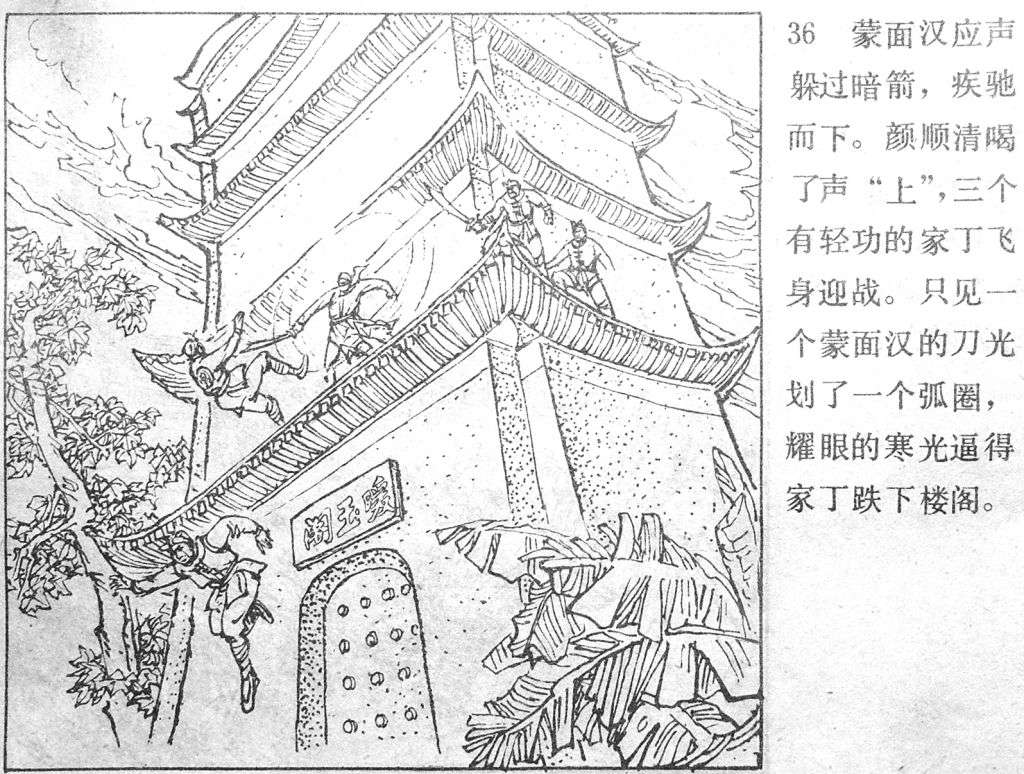 36 蒙面汉应声
躲过暗箭，疾驰
而下。颜顺清喝
了声“上”，三个
有轻功的家丁飞
身迎战。只见一
个蒙面汉的刀光
划了一个弧圈，
耀眼的寒光逼得
家丁跌下楼阁。
玉阁